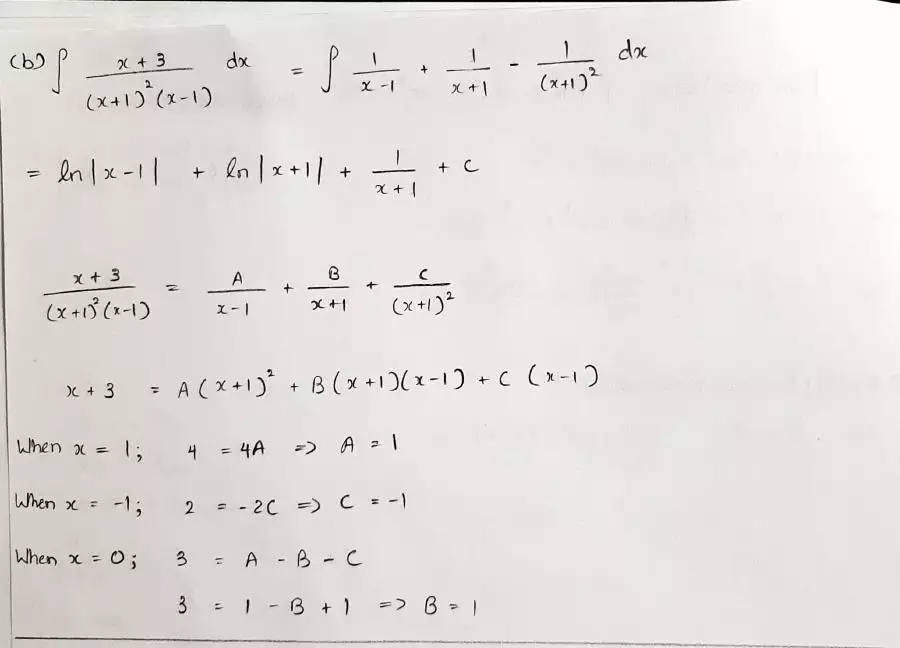 (b) ∫ x + 3 / (x+1)²(x-1) dx = ∫ 1/(x-1) + 1/(x+1) - 1/(x+1)² dx
= ln|x-1| + ln|x+1| + 1/(x+1) + C
x + 3 / (x+1)²(x-1) = A/(x-1) + B/(x+1) + C/(x+1)²
x + 3 = A(x+1)² + B(x+1)(x-1) + C(x-1)
When x = 1; 4 = 4A => A = 1
When x = -1; 2 = -2C => C = -1
When x = 0; 3 = A - B - C
3 = 1 - B + 1 => B = 1